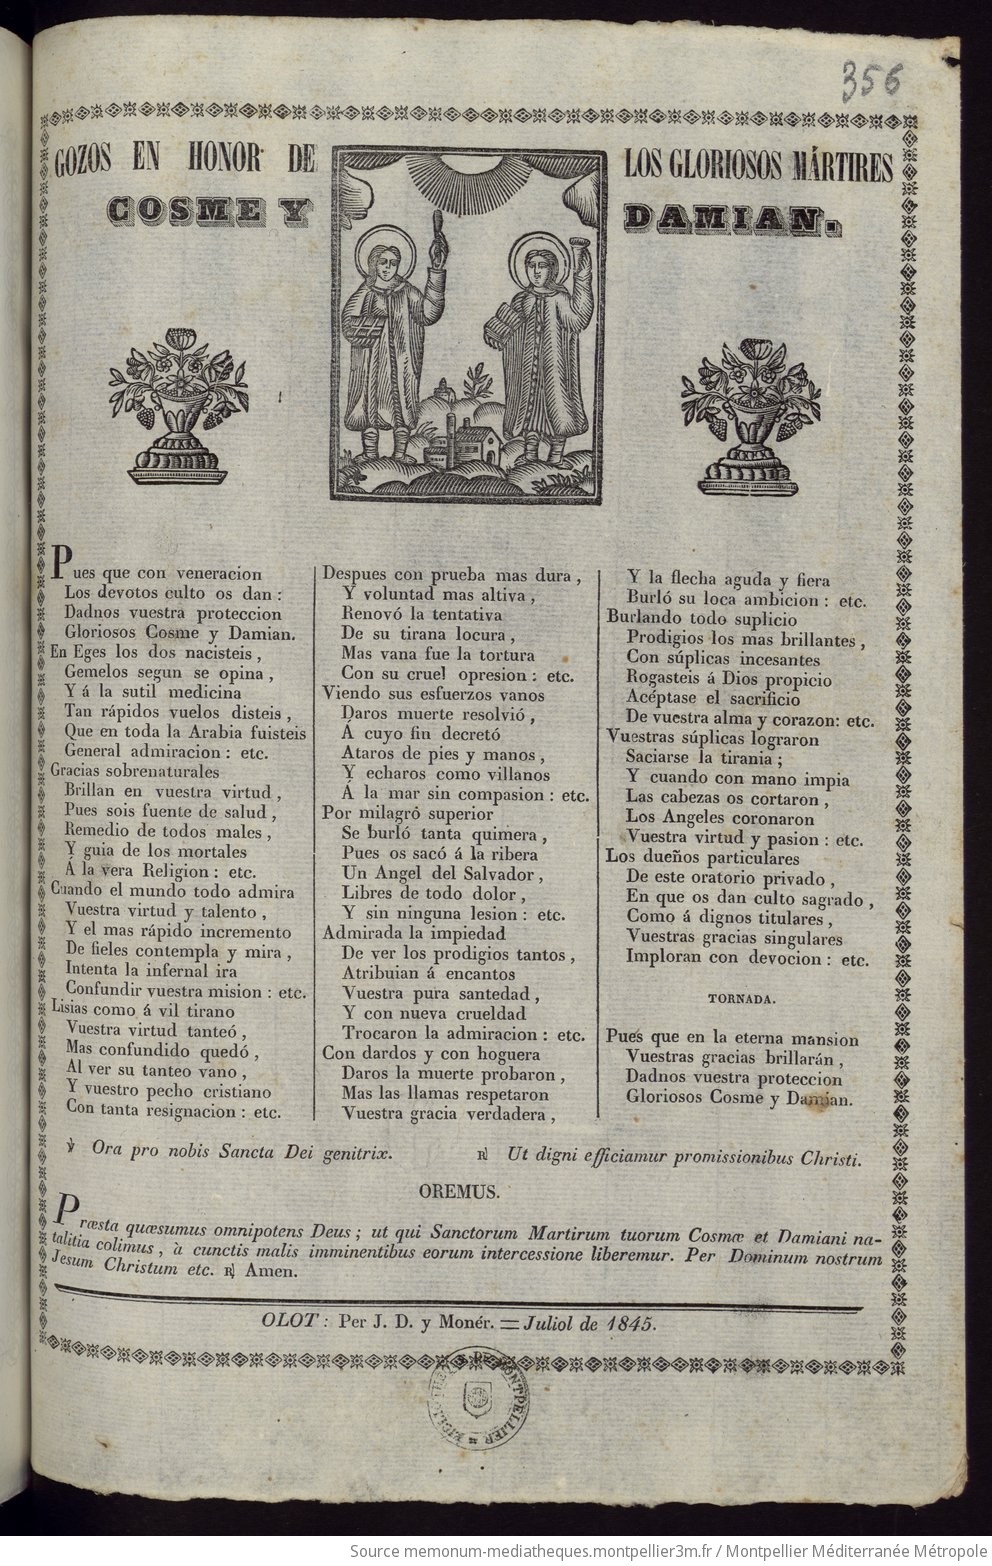 356
GOZOS EN HONOR DE LOS GLORIOSOS MÁRTIRES
COSME Y DAMIAN.
Pues que con veneracion
Los devotos culto os dan :
Dadnos vuestra proteccion
Gloriosos Cosme y Damian.
En Eges los dos nacisteis ,
Gemelos segun se opina ,
Y á la sutil medicina
Tan rápidos vuelos disteis ,
Que en toda la Arabia fuisteis
General admiracion : etc.
Gracias sobrenaturales
Brillan en vuestra virtud ,
Pues sois fuente de salud ,
Remedio de todos males ,
Y guia de los mortales
Á la vera Religion : etc.
Cuando el mundo todo admira
Vuestra virtud y talento ,
Y el mas rápido incremento
De fieles contempla y mira ,
Intenta la infernal ira
Confundir vuestra mision : etc.
Lisias como á vil tirano
Vuestra virtud tanteó ,
Mas confundido quedó ,
Al ver su tanteo vano ,
Y vuestro pecho cristiano
Con tanta resignacion : etc.
Despues con prueba mas dura ,
Y voluntad mas altiva ,
Renovó la tentativa
De su tirana locura ,
Mas vana fue la tortura
Con su cruel opresion : etc.
Viendo sus esfuerzos vanos
Daros muerte resolvió ,
Á cuyo fin decretó
Ataros de pies y manos ,
Y echaros como villanos
Á la mar sin compasion : etc.
Por milagró superior
Se burló tanta quimera ,
Pues os sacó á la ribera
Un Angel del Salvador ,
Libres de todo dolor ,
Y sin ninguna lesion : etc.
Admirada la impiedad
De ver los prodigios tantos ,
Atribuian á encantos
Vuestra pura santedad ,
Y con nueva crueldad
Trocaron la admiracion : etc.
Con dardos y con hoguera
Daros la muerte probaron ,
Mas las llamas respetaron
Vuestra gracia verdadera ,
Y la flecha aguda y fiera
Burló su loca ambicion : etc.
Burlando todo suplicio
Prodigios los mas brillantes ,
Con súplicas incesantes
Rogasteis á Dios propicio
Acéptase el sacrificio
De vuestra alma y corazon: etc.
Vuestras súplicas lograron
Saciarse la tirania ;
Y cuando con mano impia
Las cabezas os cortaron ,
Los Angeles coronaron
Vuestra virtud y pasion : etc.
Los dueños particulares
De este oratorio privado ,
En que os dan culto sagrado ,
Como á dignos titulares ,
Vuestras gracias singulares
Imploran con devocion : etc.
TORNADA.
Pues que en la eterna mansion
Vuestras gracias brillarán ,
Dadnos vuestra proteccion
Gloriosos Cosme y Damian.
℣ Ora pro nobis Sancta Dei genitrix. ℟ Ut digni efficiamur promissionibus Christi.
OREMUS.
Præsta quæsumus omnipotens Deus ; ut qui Sanctorum Martirum tuorum Cosmæ et Damiani na-
talitia colimus , à cunctis malis imminentibus eorum intercessione liberemur. Per Dominum nostrum
Jesum Christum etc. ℟ Amen.
OLOT : Per J. D. y Monér. = Juliol de 1845.
BIBLIOTHEQUE DE MONTPELLIER
Source memonum-mediatheques.montpellier3m.fr / Montpellier Méditerranée Métropole